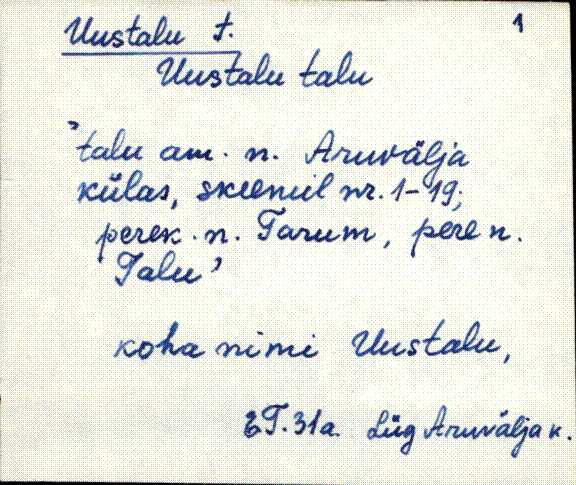 Uustalu t.
1
Uustalu talu
"talu am. n. Aruvälja
külas, skeemil nr. 1-19;
perek. n. Tarum, pere n.
Talu"
koha nimi Uustalu,
ET. 31a. Lüg Aruvälja k.